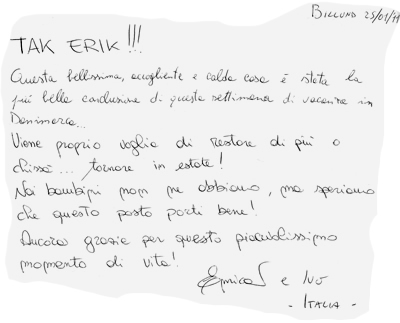 BILLUND 25/01/99
TAK ERIK!!!
Questa bellissima, accogliente e calda casa è stata la
più bella conclusione di questa settimana di vacanza in
Danimarca...
Viene proprio voglia di restare di più o
chissà... tornare in estate!
Noi bambini non ne abbiamo, ma speriamo
che questo posto porti bene!
Ancora grazie per questo piacevolissimo
momento di vita!
e Ivo
- ITALIA -